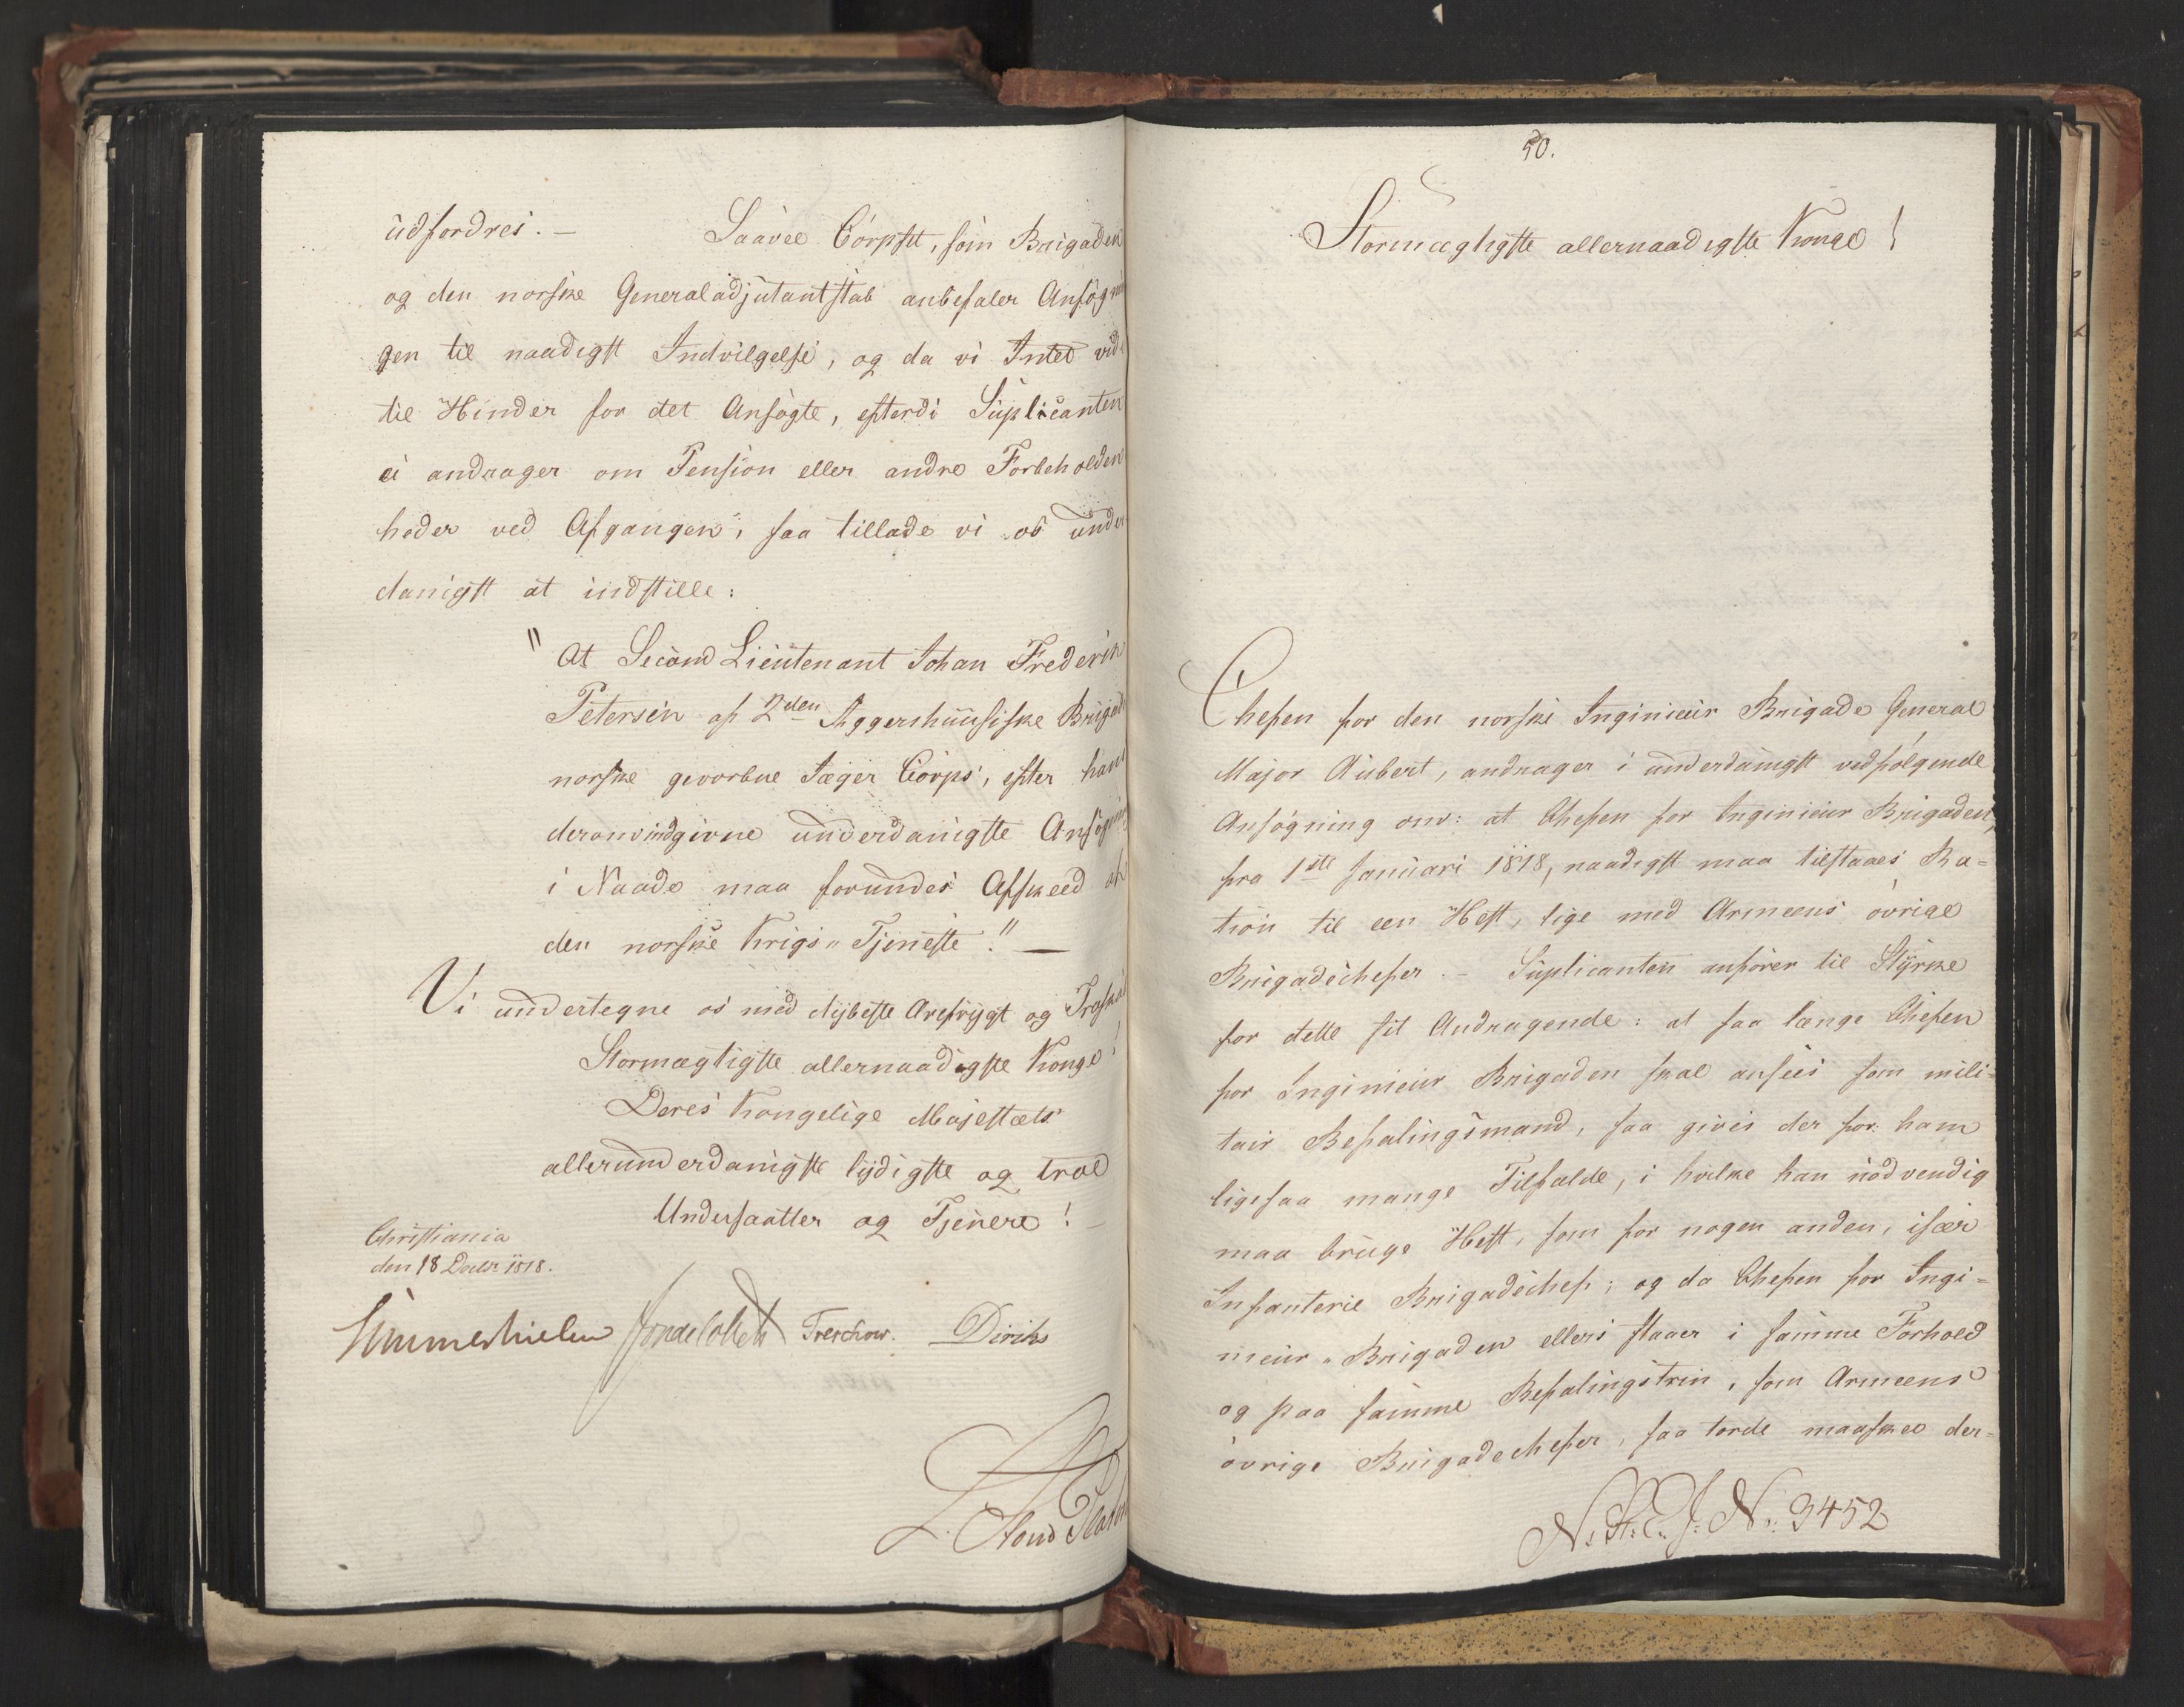 udfordres. — Saavel Corpset, som Brigaden
og den norske Generaladjutantstab anbefaler Ansøgnin
gen til naadigst Indvilgelse, og da vi Intet vide
til Hinder for det Ansøgte, efterdi Suplicanten
ei andrager om Pension eller andre Forbeholden
heder ved Afgangen, saa tillade vi os under
danigst at indstille:
"At Second Lieutenant Johan Frederik
Petersen af 2den Aggershuusiske Brigade
norske gevorbne Jæger Corps, efter hans
derom indgivne underdanigste Ansøgning
i Naade maa forundes Afskeed af
den norske Krigs-Tjeneste." —
Vi undertegne os med dybeste Ærefrygt og Troskab
Stormægtigste allernaadigste Konge!
Deres Kongelige Majestæts
allerunderdanigste lydigste og troe
Undersaatter og Tjenere! —
Christiania
den 18 Decbr 1818.
Sommerhielm Jonas Collett Treschow. Diriks
50.
Stormægtigste allernaadigste Konge!
Chefen for den norske Ingenieur Brigade General
Major Aubert, andrager i underdanigst vedfølgende
Ansøgning om: at Chefen for Ingenieur Brigaden,
fra 1ste Januari 1818, naadigst maa tilstaaes Ra=
tion til een Hest, lige med Armeens øvrige
Brigadechefer. — Suplicanten anfører til Styrke
for dette sit Andragende: at saa længe Chefen
for Ingenieur Brigaden skal ansees som mili=
tair Befalingsmand, saa gives der for ham
ligesaa mange Tilfælde, i hvilke han nødvendig
maa bruge Hest, som for nogen anden, især
Infanterie Brigadechef; og da Chefen for Ingi=
nieur-Brigaden ellers staaer i samme Forhold
og paa samme Befalingstrin, som Armeens
øvrige Brigadechefer, saa torde maaskee der=
N. R. C. J. No. 3452